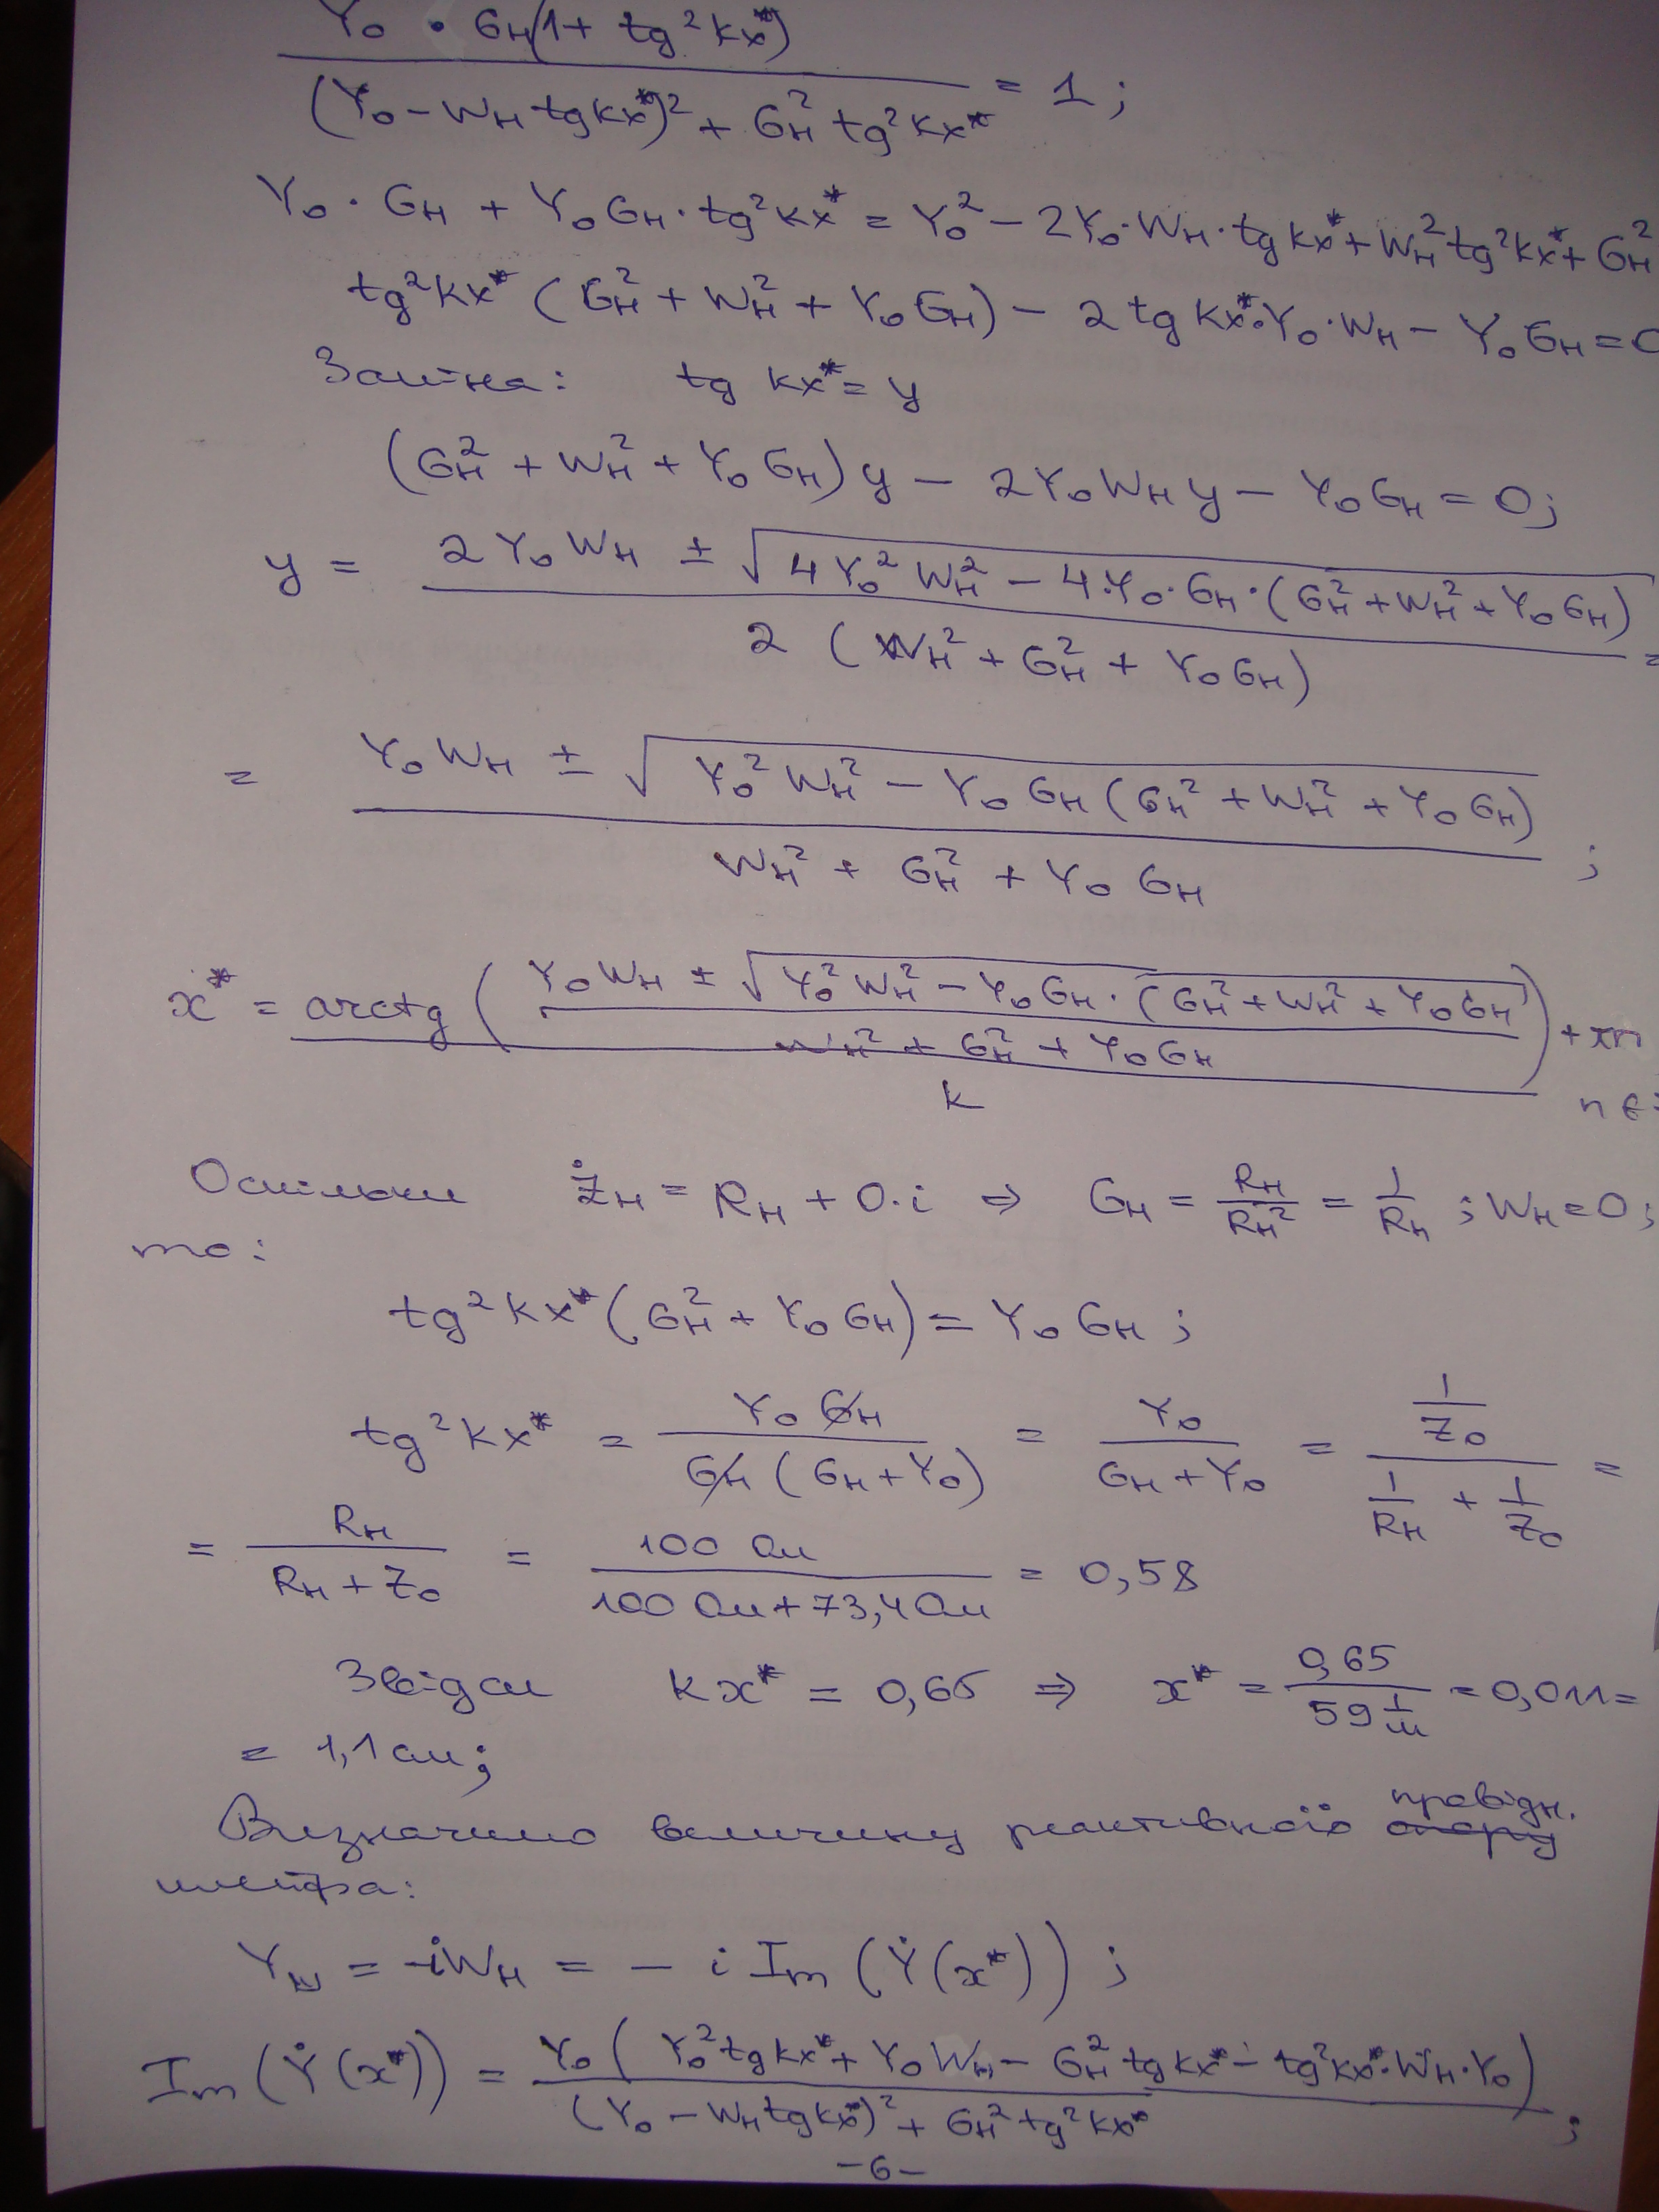 Y₀ · Gн(1 + tg²kx*)
/ (Y₀ − Wн tgkx*)² + Gн² tg²kx* = 1;
Y₀ · Gн + Y₀Gн · tg²kx* = Y₀² − 2Y₀·Wн·tgkx* + Wн²tg²kx* + Gн²
tg²kx* (Gн² + Wн² + Y₀Gн) − 2tgkx*·Y₀·Wн − Y₀Gн = 0
Заміна: tg kx* = y
(Gн² + Wн² + Y₀Gн)y − 2Y₀Wнy − Y₀Gн = 0;
y = 2Y₀Wн ± √(4Y₀²Wн² − 4·Y₀·Gн·(Gн² + Wн² + Y₀Gн)) / 2(Wн² + Gн² + Y₀Gн) =
= Y₀Wн ± √(Y₀²Wн² − Y₀Gн(Gн² + Wн² + Y₀Gн)) / Wн² + Gн² + Y₀Gн ;
x* = arctg(Y₀Wн ± √(Y₀²Wн² − Y₀Gн·(Gн² + Wн² + Y₀Gн)) / Wн² + Gн² + Y₀Gн) / k + πn
n ∈
Оскільки Żн = Rн + 0·i ⇒ Gн = Rн/Rн² = 1/Rн ; Wн = 0;
то:
tg²kx*(Gн² + Y₀Gн) = Y₀Gн ;
tg²kx* = Y₀Gн / Gн(Gн + Y₀) = Y₀ / Gн + Y₀ = 1/Z₀ / 1/Rн + 1/Z₀ =
= Rн / Rн + Z₀ = 100 Ом / 100 Ом + 73,4 Ом = 0,58
Звідси kx* = 0,65 ⇒ x* = 0,65 / 59 1/м = 0,011 =
= 1,1 см;
Визначимо величину реактивної провідн.
шлейфа:
Yш = −iWн = −i Im(Ẏ(x*)) ;
Im(Ẏ(x*)) = Y₀(Y₀²tgkx* + Y₀Wн − Gн²tgkx* − tg²kx*·Wн·Y₀) / (Y₀ − Wнtgkx*)² + Gн²tg²kx* ;
−6−